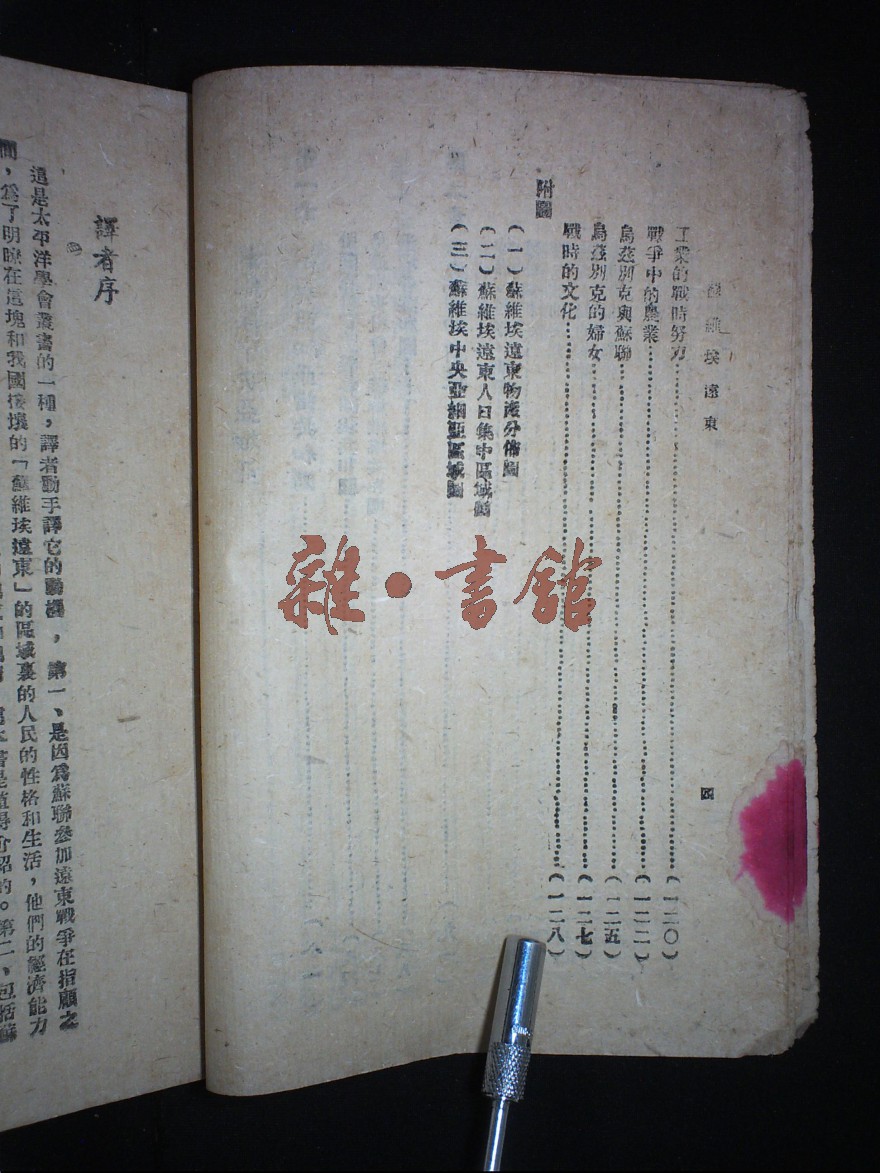 蘇維埃遠東
四
工業的戰時努力……(一二〇)
戰爭中的農業……(一二二)
烏茲別克與蘇聯……(一二五)
烏茲別克的婦女……(一二七)
戰時的文化……(一二八)
附圖
(一)蘇維埃遠東物產分佈圖
(二)蘇維埃遠東人口集中區域圖
(三)蘇維埃中央亞細亞區域圖
譯者序
這是太平洋學會叢書的一種,譯者動手譯它的動機,第一、是因爲蘇聯參加遠東戰爭在指顧之
間,爲了明瞭在這塊和我國接壤的「蘇維埃遠東」的區域裏的人民的性格和生活,他們的經濟能力
是值得介紹的。第二、包括蘇
雜·書館